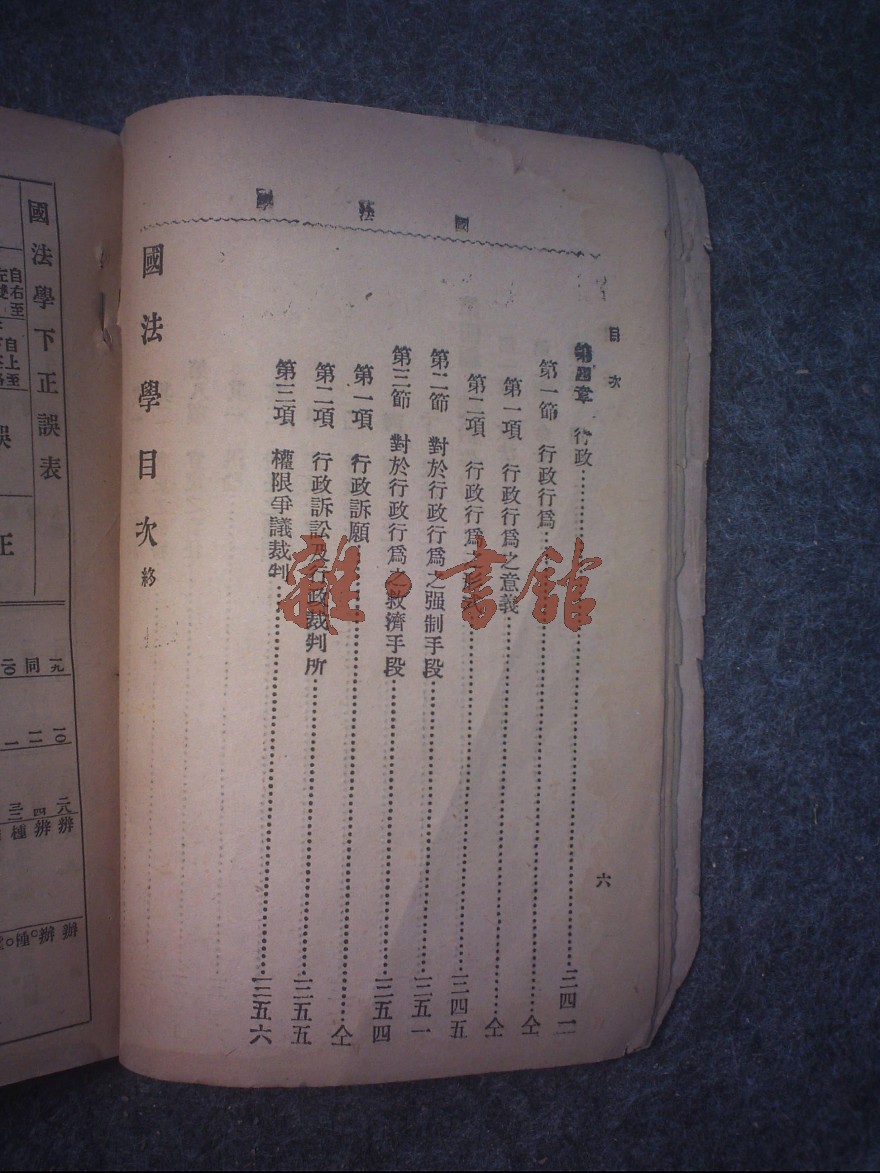 國法學
目次
六
第四章 行政……三四二
第一節 行政行爲……仝
第一項 行政行爲之意義……仝
第二項 行政行爲之……三四五
第二節 對於行政行爲之强制手段……三五一
第三節 對於行政行爲之救濟手段……三五四
第一項 行政訴願……仝
第二項 行政訴訟及行政裁判所……三五五
第三項 權限爭議裁判……三五六
國法學目次 終
國法學下正誤表
自右至
自上至
正
雜·書館